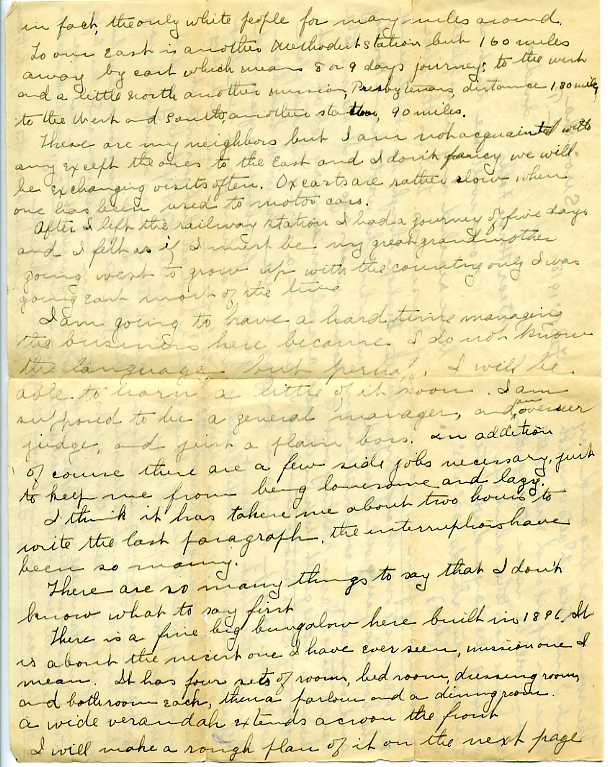 in fact, the only white people for many miles around.
To our East is another Methodist station but 160 miles
away by cart which means 8 or 9 days journey; to the west
and a little north another mission, Presbyterians, distance 180 miles,
to the West and South another station, 90 miles.
These are my neighbors but I am not acquainted with
any except the ones to the East and I don't fancy we will
be exchanging visits often. Ox carts are rather slow when
one has been used to motor cars.
After I left the railway station I had a journey of five days
and I felt as if I must be my great grandmother
going west to grow up with the country only I was
going East most of the time
I am going to have a hard time managing
the business here because I do not know
the language but perhaps I will be
able to learn a little of it soon. I am
supposed to be a general manager, and an overseer
judge, and just a plain boss. In addition
of course there are a few side jobs necessary, just
to keep me from being lonesome and lazy.
I think it has taken me about two hours to
write the last paragraph, the interruptions have
been so many.
There are so many things to say that I don't
know what to say first
There is a fine big bungalow here built in 1896, It
is about the nicest one I have ever seen, mission one I
mean. It has four sets of rooms, bed room, dressing room,
and bathroom each, then a parlour and a dining room.
a wide verandah extends across the front
I will make a rough plan of it on the next page